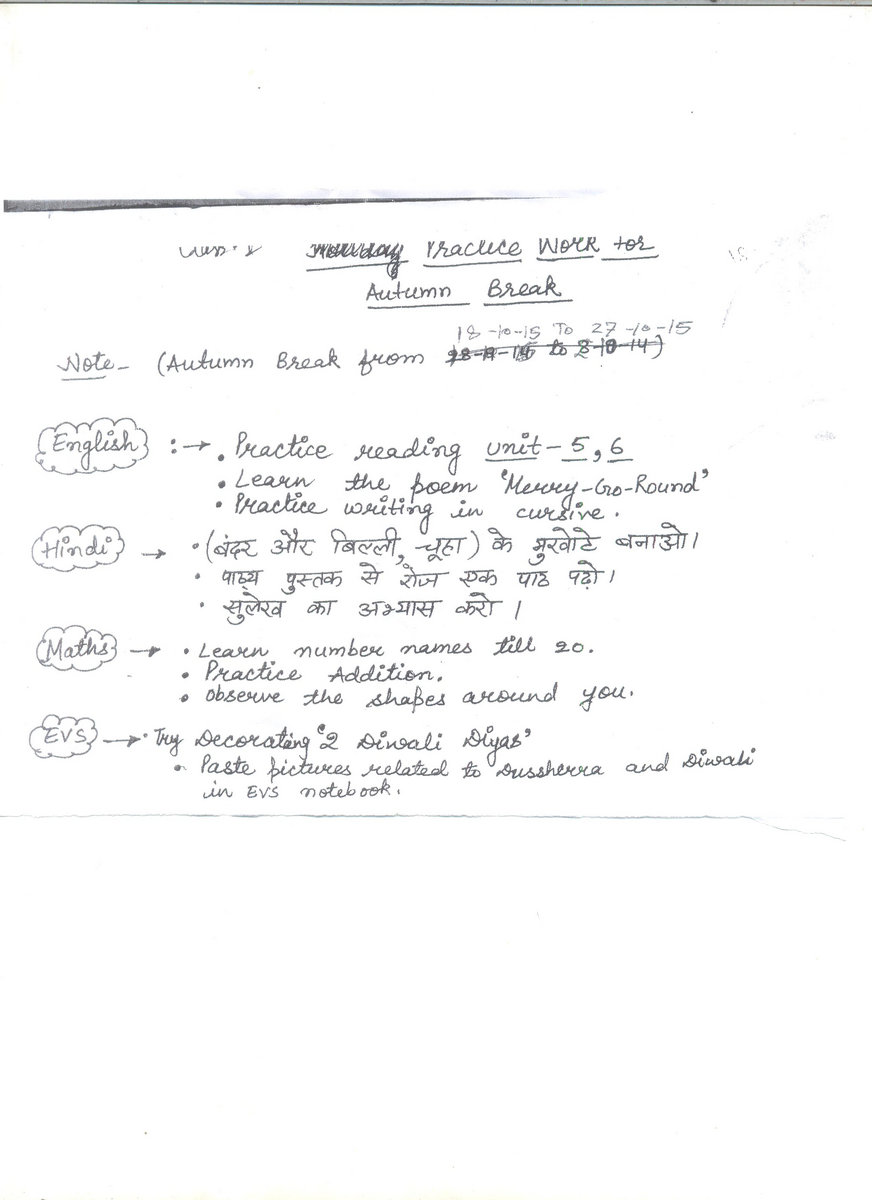 Practice Work for
Autumn Break
18-10-15 To 27-10-15
Note- (Autumn Break from to 8-10-14)
English :→ • Practice reading unit-5, 6
• Learn the poem 'Merry-Go-Round'
• Practice writing in cursive.
Hindi → • (बंदर और बिल्ली, चूहा) के मुखौटे बनाओ।
• पाठ्य पुस्तक से रोज एक पाठ पढ़ो।
• सुलेख का अभ्यास करो।
Maths → • Learn number names till 20.
• Practice Addition.
• Observe the shapes around you.
EVS → • Try Decorating '2 Diwali Diyas'
• Paste pictures related to Dussherra and Diwali
in EVS notebook.